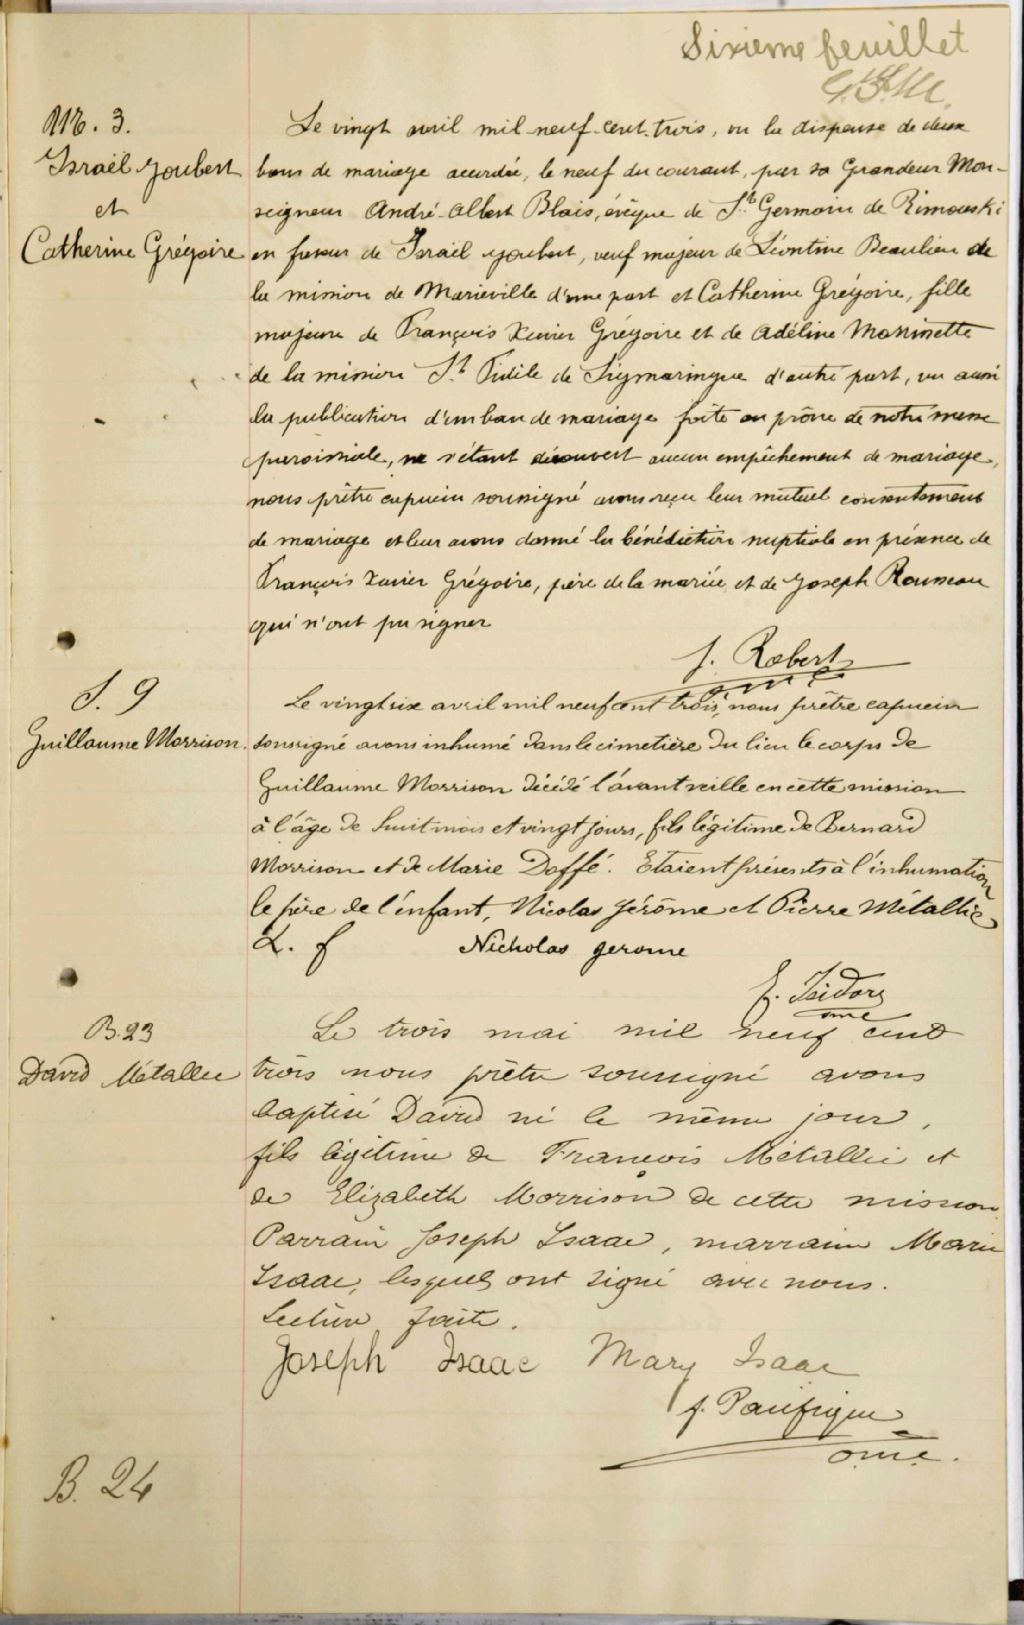 Sixieme feuillet
M. 3.
Israël Joubert
et
Catherine Grégoire
Le vingt avril mil-neuf-cent-trois, vu la dispense de deux
bans de mariage accordée, le neuf du courant, par sa Grandeur Mon-
seigneur André-Albert Blais, évêque de St Germain de Rimouski
en faveur de Israël Joubert, veuf majeur de Léontine Beaulieu de
la mission de Marieville d'une part et Catherine Grégoire, fille
majeure de François Xavier Grégoire et de Adéline
de la mission St Fidèle de d'autre part, vu aussi
la publication d'un ban de mariage faite au prône de notre messe
paroissiale, ne s'étant découvert aucun empêchement de mariage,
nous prêtre capucin soussigné avons reçu leur mutuel consentement
de mariage et leur avons donné la bénédiction nuptiale en présence de
François Xavier Grégoire, père de la mariée et de Joseph Rousseau
qui n'ont pu signer
f. Robert
omc
S. 9
Guillaume Morrison.
Le vingt six avril mil neuf cent trois, nous prêtre capucin
soussigné avons inhumé dans le cimetière du lieu le corps de
Guillaume Morrison décédé l'avant veille en cette mission
à l'âge de huit mois et vingt jours, fils légitime de Bernard
Morrison et de Marie Daffé. Etaient présents à l'inhumation
le père de l'enfant, Nicolas Jérôme et Pierre Métallic
L. f Nicholas gerome
f. Isidore
omc
B. 23
David Métallic
Le trois mai mil neuf cent
trois nous prêtre soussigné avons
baptisé David né le même jour,
fils légitime de François Métallic et
de Elizabeth Morrison de cette mission
Parrain Joseph Isaac, marraine Marie
Isaac, lesquels ont signé avec nous.
Lecture faite.
Joseph Isaac Mary Isaac
f. Pacifique
o.m.c.
B. 24